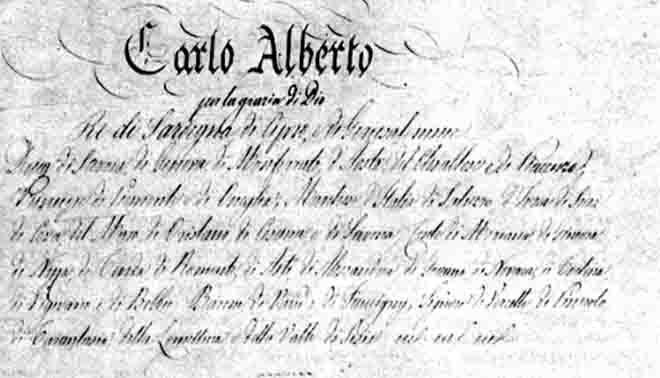 Carlo Alberto
per la grazia di Dio
Re di Sardegna di Cipro, e di Gerusalemme
Duca di Savoia, di Genova di Monferrato, d'Aosta del Chiablese e di Piacenza,
Principe di Piemonte e di Oneglia, Marchese d'Italia di Saluzzo d'Ivrea di Susa
di Ceva del Maro di Oristano di Cesana e di Savona, Conte di Moriana di Ginevra
di Nizza di Tenda di Romonte, di Asti di Alessandria di Goceano di Novara, di Tortona
di Vigevano e di Bobbio Barone di Vaud e di Faucigny, Signore di Vercelli di Pinerolo
di Tarantasia della Lomellina e della Valle di Sesia